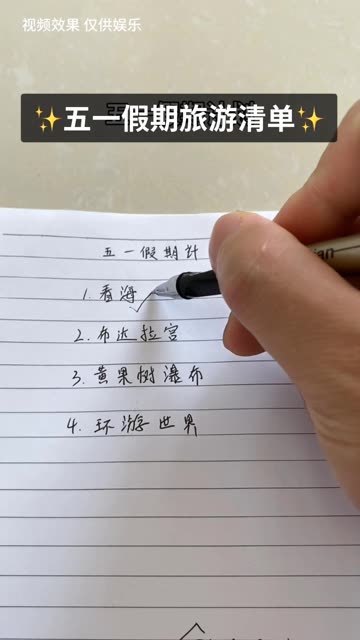 视频效果 仅供娱乐
✨五一假期旅游清单✨
五一假期计
1.看海
2.布达拉宫
3.黄果树瀑布
4.环游世界